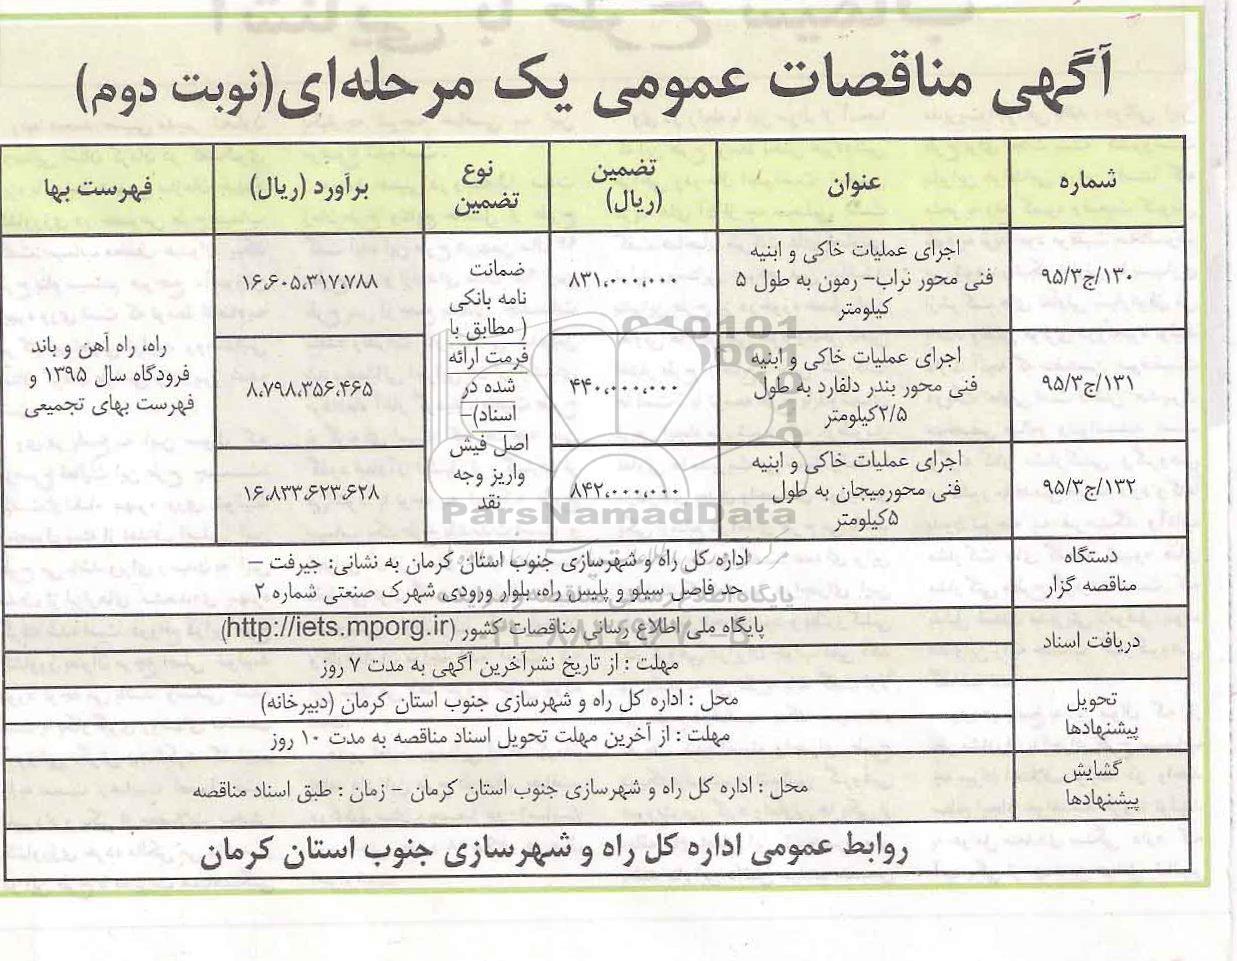 آگهی مناقصات عمومی یک مرحله‌ای(نوبت دوم)
شماره
عنوان
تضمین
(ریال)
نوع
تضمین
برآورد (ریال)
فهرست بها
۹۵/۳ج/۱۳۰
اجرای عملیات خاکی و ابنیه
فنی محور نراب- رمون به طول ۵
کیلومتر
۸۳۱،۰۰۰،۰۰۰
ضمانت
نامه بانکی
( مطابق با
فرمت ارائه
شده در
اسناد)–
اصل فیش
واریز وجه
نقد
۱۶،۶۰۵،۳۱۷،۷۸۸
راه، راه آهن و باند
فرودگاه سال ۱۳۹۵ و
فهرست بهای تجمیعی
۹۵/۳ج/۱۳۱
اجرای عملیات خاکی و ابنیه
فنی محور بندر دلفارد به طول
۲/۵کیلومتر
۴۴۰،۰۰۰،۰۰۰
۸،۷۹۸،۳۵۶،۴۶۵
۹۵/۳ج/۱۳۲
اجرای عملیات خاکی و ابنیه
فنی محورمیجان به طول
۵کیلومتر
۸۴۲،۰۰۰،۰۰۰
۱۶،۸۳۳،۶۲۳،۶۲۸
ParsNamadData
دستگاه
مناقصه گزار
اداره کل راه و شهرسازی جنوب استان کرمان به نشانی: جیرفت –
حد فاصل سیلو و پلیس راه، بلوار ورودی شهرک صنعتی شماره ۲
دریافت اسناد
پایگاه ملی اطلاع رسانی مناقصات کشور (http://iets.mporg.ir)
مهلت : از تاریخ نشرآخرین آگهی به مدت ۷ روز
تحویل
پیشنهادها
محل : اداره کل راه و شهرسازی جنوب استان کرمان (دبیرخانه)
مهلت : از آخرین مهلت تحویل اسناد مناقصه به مدت ۱۰ روز
گشایش
پیشنهادها
محل : اداره کل راه و شهرسازی جنوب استان کرمان – زمان : طبق اسناد مناقصه
روابط عمومی اداره کل راه و شهرسازی جنوب استان کرمان